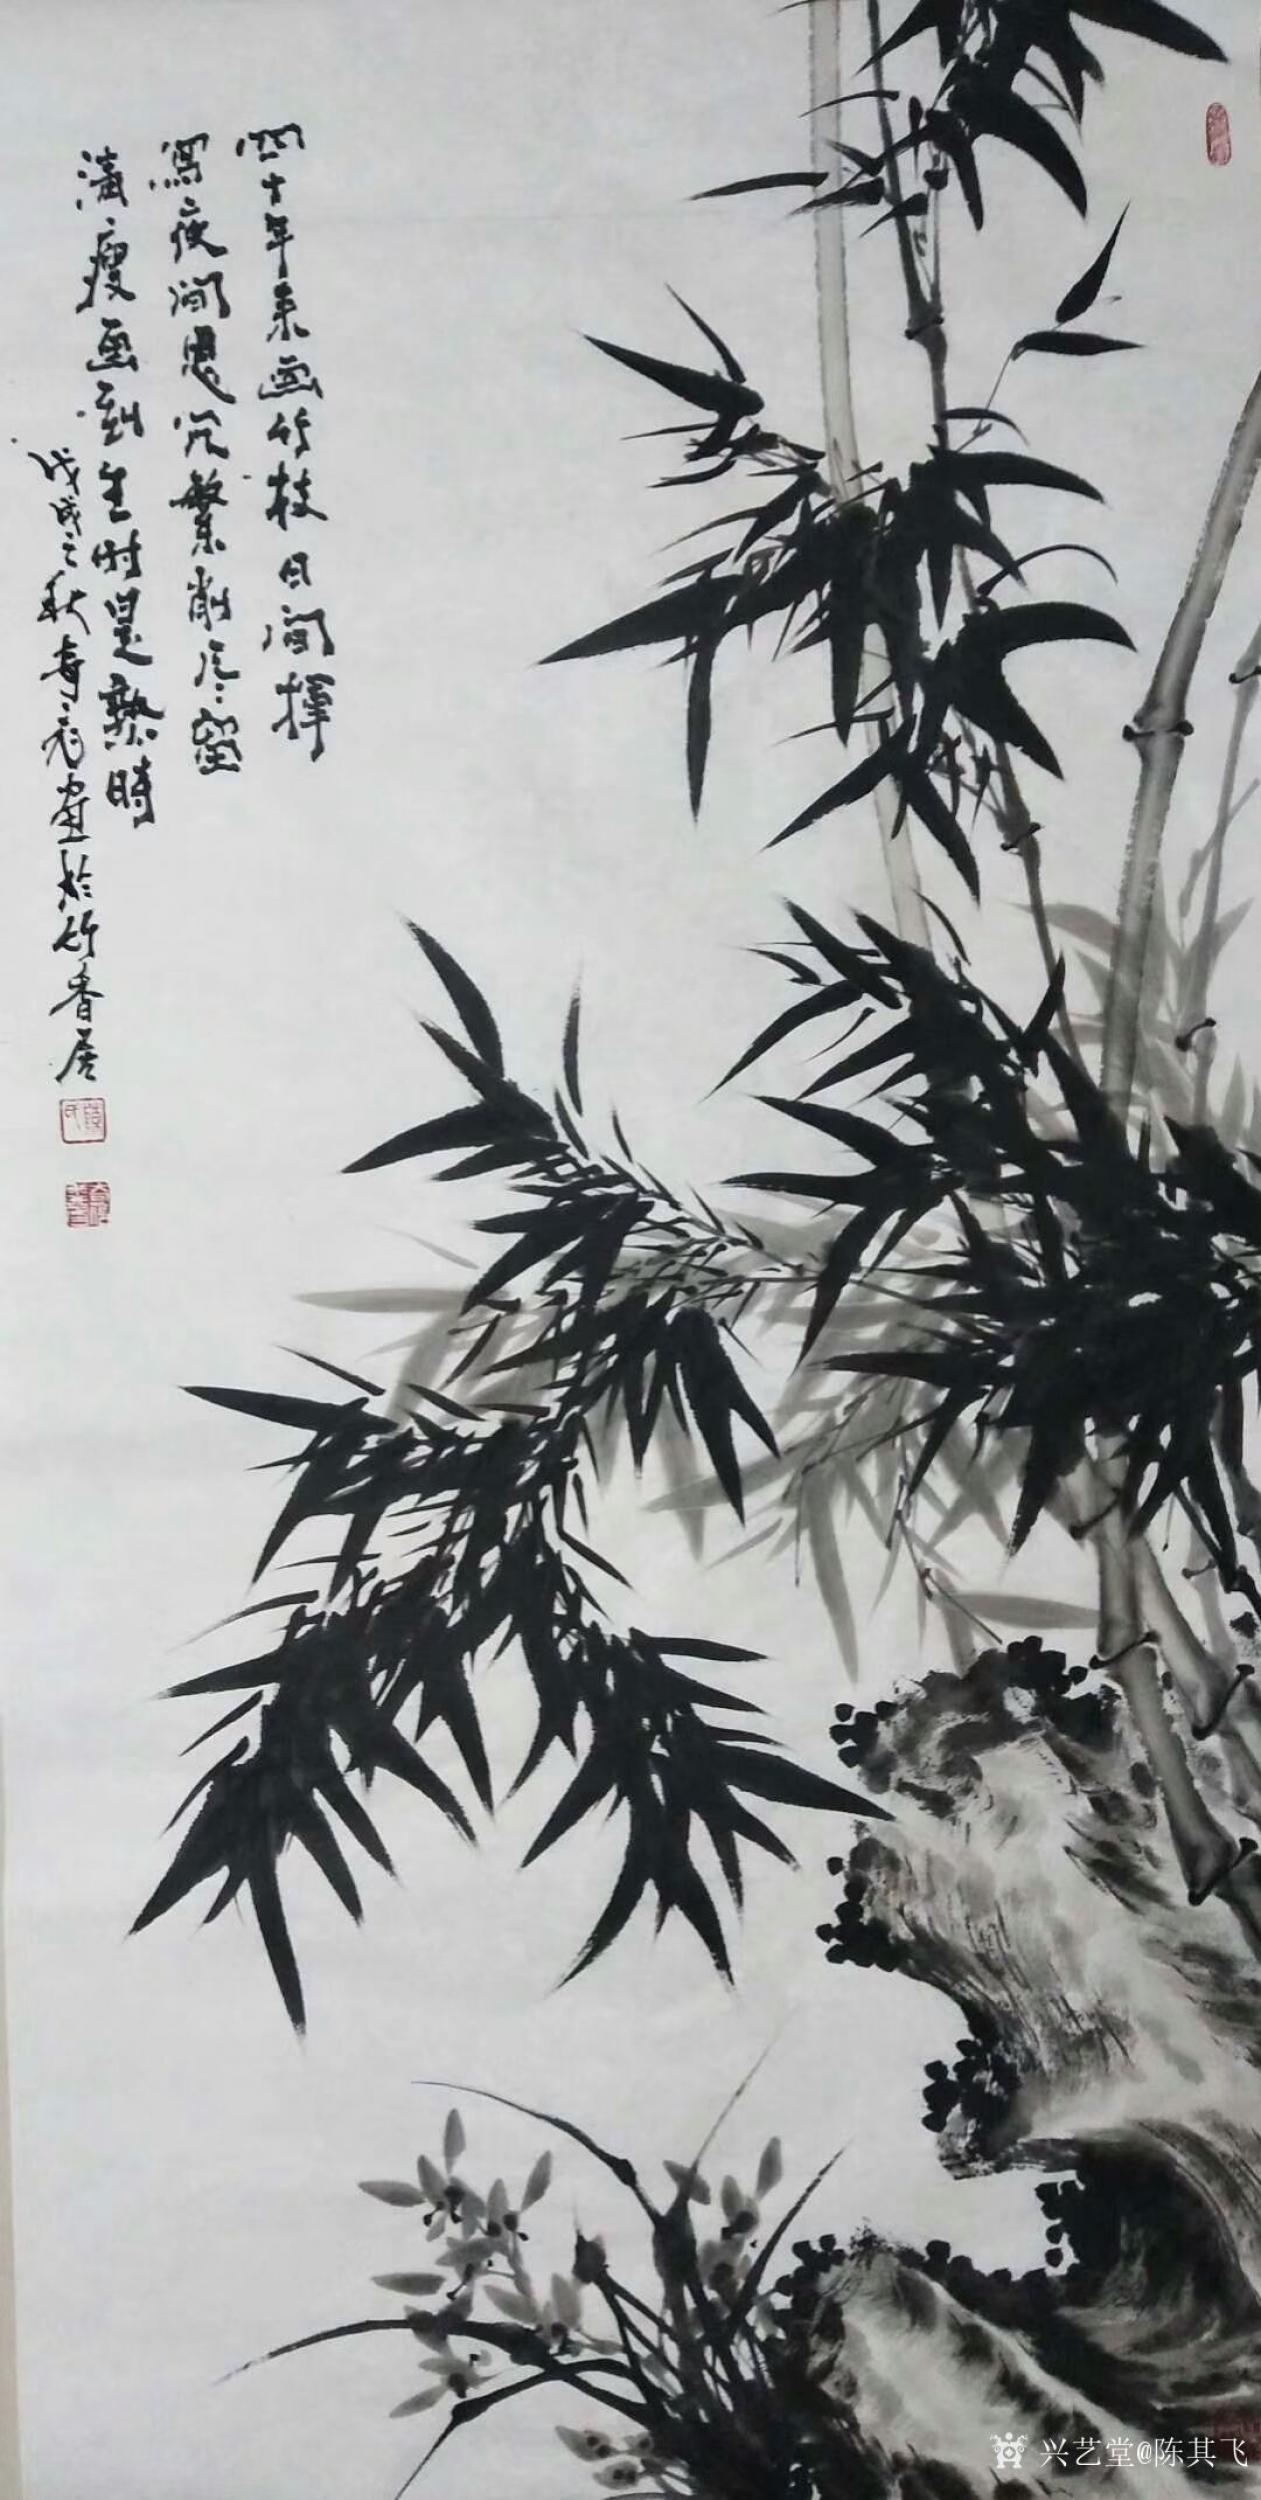 四十年来画竹枝日间挥
寫夜间思冗繁削尽留
清瘦画到生时是熟時
戊戌之秋寿彪畫於竹香居
兴艺堂@陈其飞